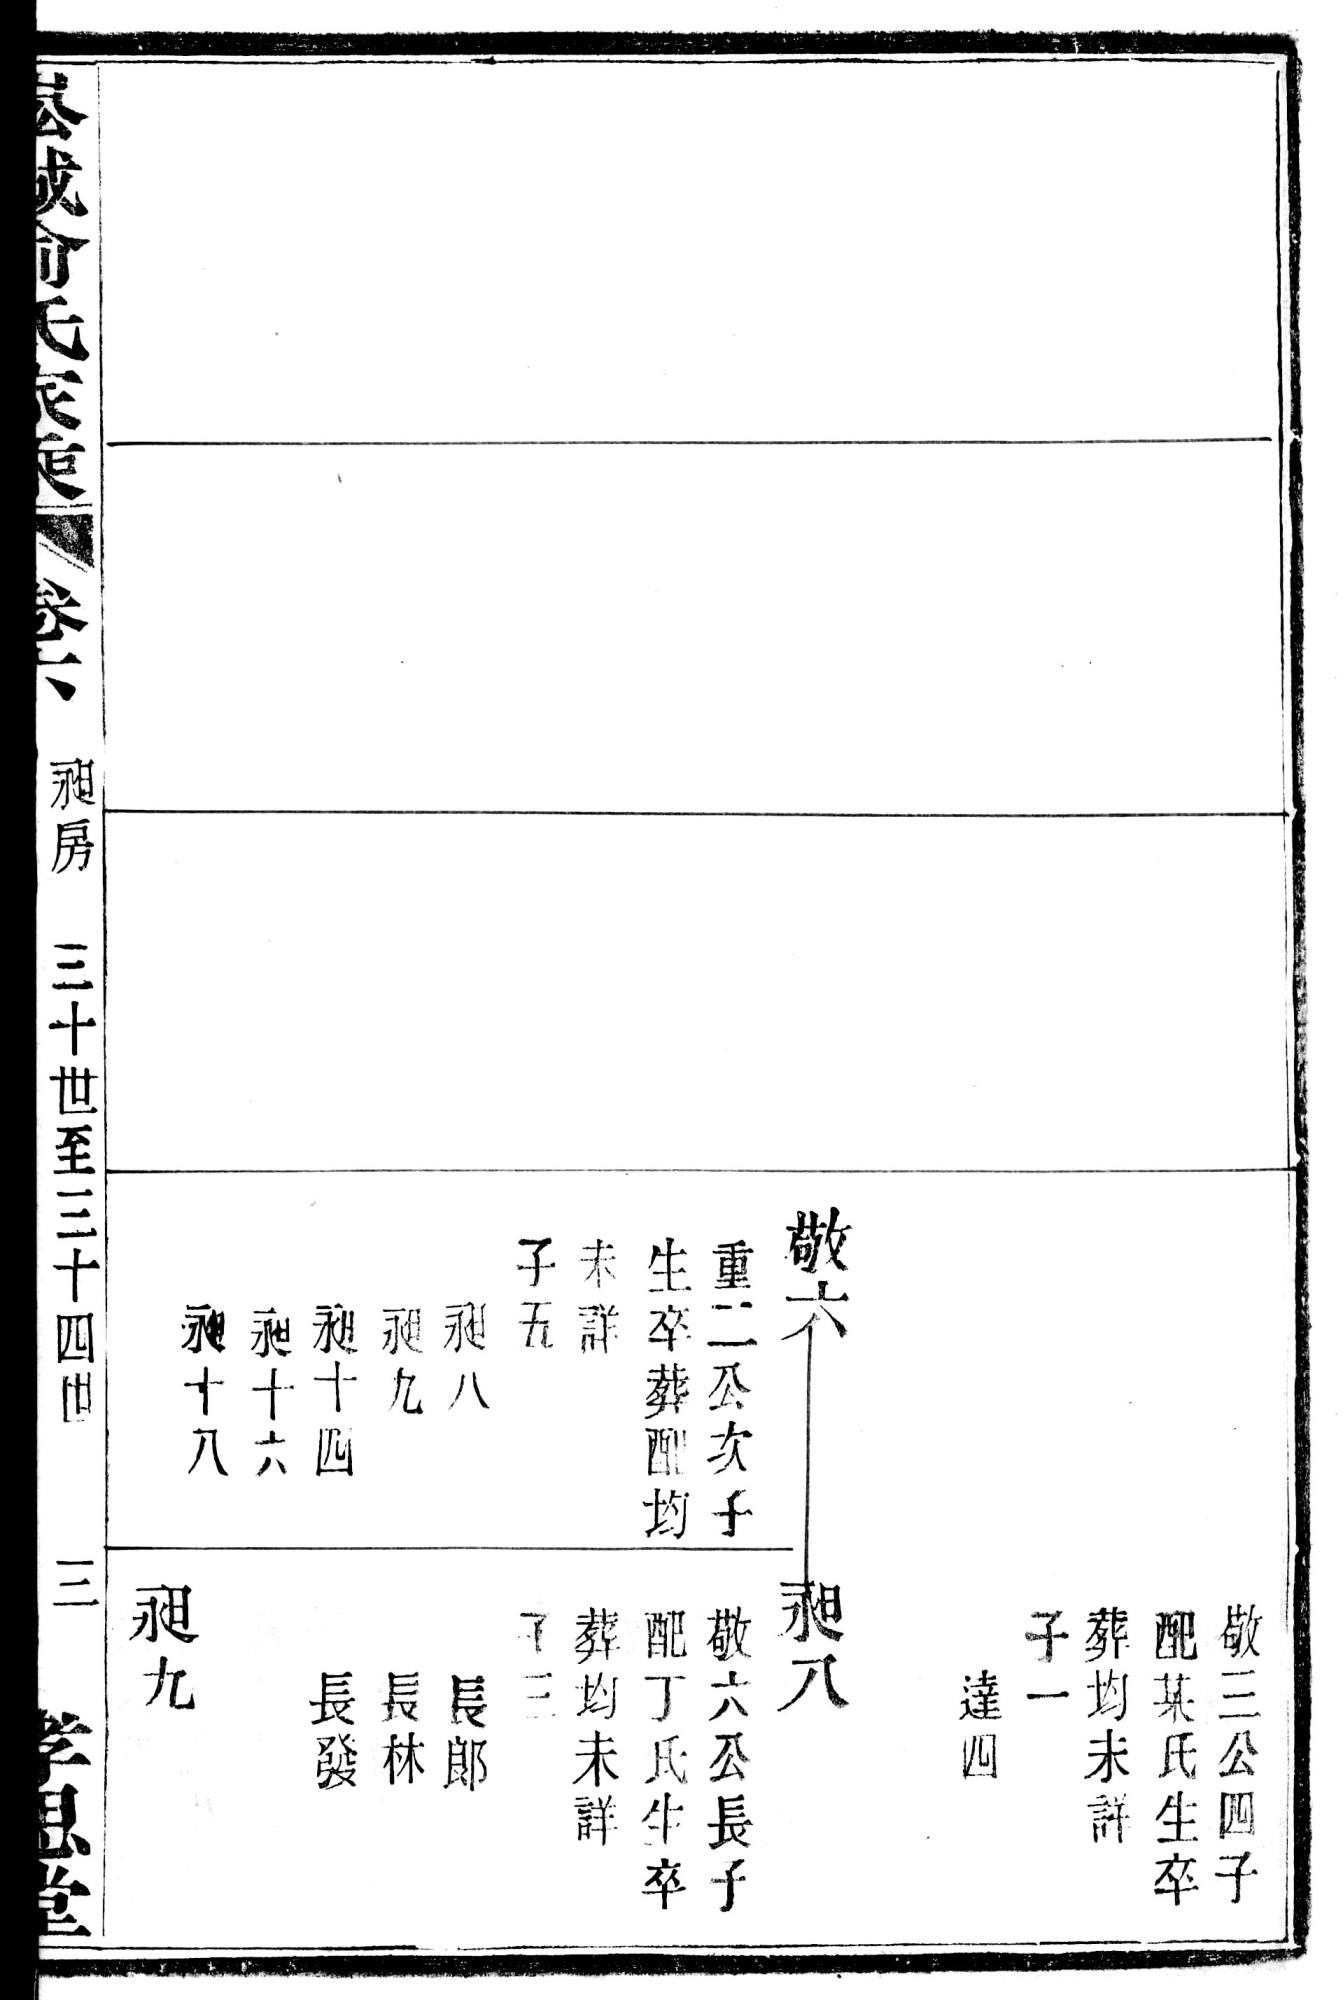 敬六
重二公次子
生卒葬配均
未詳
子五
昶八
昶九
昶十四
昶十六
昶十八
敬三公四子
配某氏生卒
葬均未詳
子一
達四
昶八
敬六公長子
配丁氏生卒
葬均未詳
子三
長郎
長林
長發
昶九
崧城俞氏家乘 卷六 昶房 三十世至三十四世 三 孝思堂